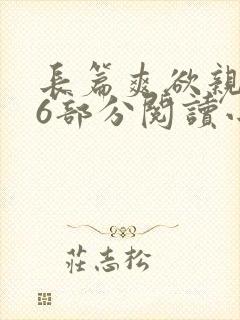 長篇爽欲親
6部分閱讀小
莊志松